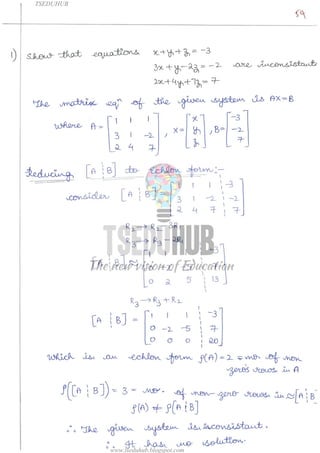 TSEDUHUB
59
1) Show that equations x+y+z = -3
3x+y-2z = -2 are inconsistant
2x+4y+7z = 7
The matrix eqn of the given system is AX=B
where A = [1 1 1 3 1 -2 2 4 7], X = [x y z], B = [-3 -2 7]
Reducing [A ⋮ B] to echlon form:-
consider [A ⋮ B] = [1 1 1 ⋮ -3
3 1 -2 ⋮ -2
2 4 7 ⋮ 7]
R2 → R2 - 3R1
R3 → R3 - 2R1
TSEDUHUB
The new vision of Education
0 2 5 ⋮ 13
R3 → R3 + R2
[A ⋮ B] = [1 1 1 ⋮ -3
0 -2 -5 ⋮ 7
0 0 0 ⋮ 20]
which is an echlon form ρ(A) = 2 = no. of non
zero's rows in A
ρ([A ⋮ B]) = 3 = no. of non-zero rows in ≃ [A ⋮ B]
ρ(A) ≠ ρ[A ⋮ B]
∴ The given system is inconsistant.
∴ It has no solution.
www.tseduhub.blogspot.com